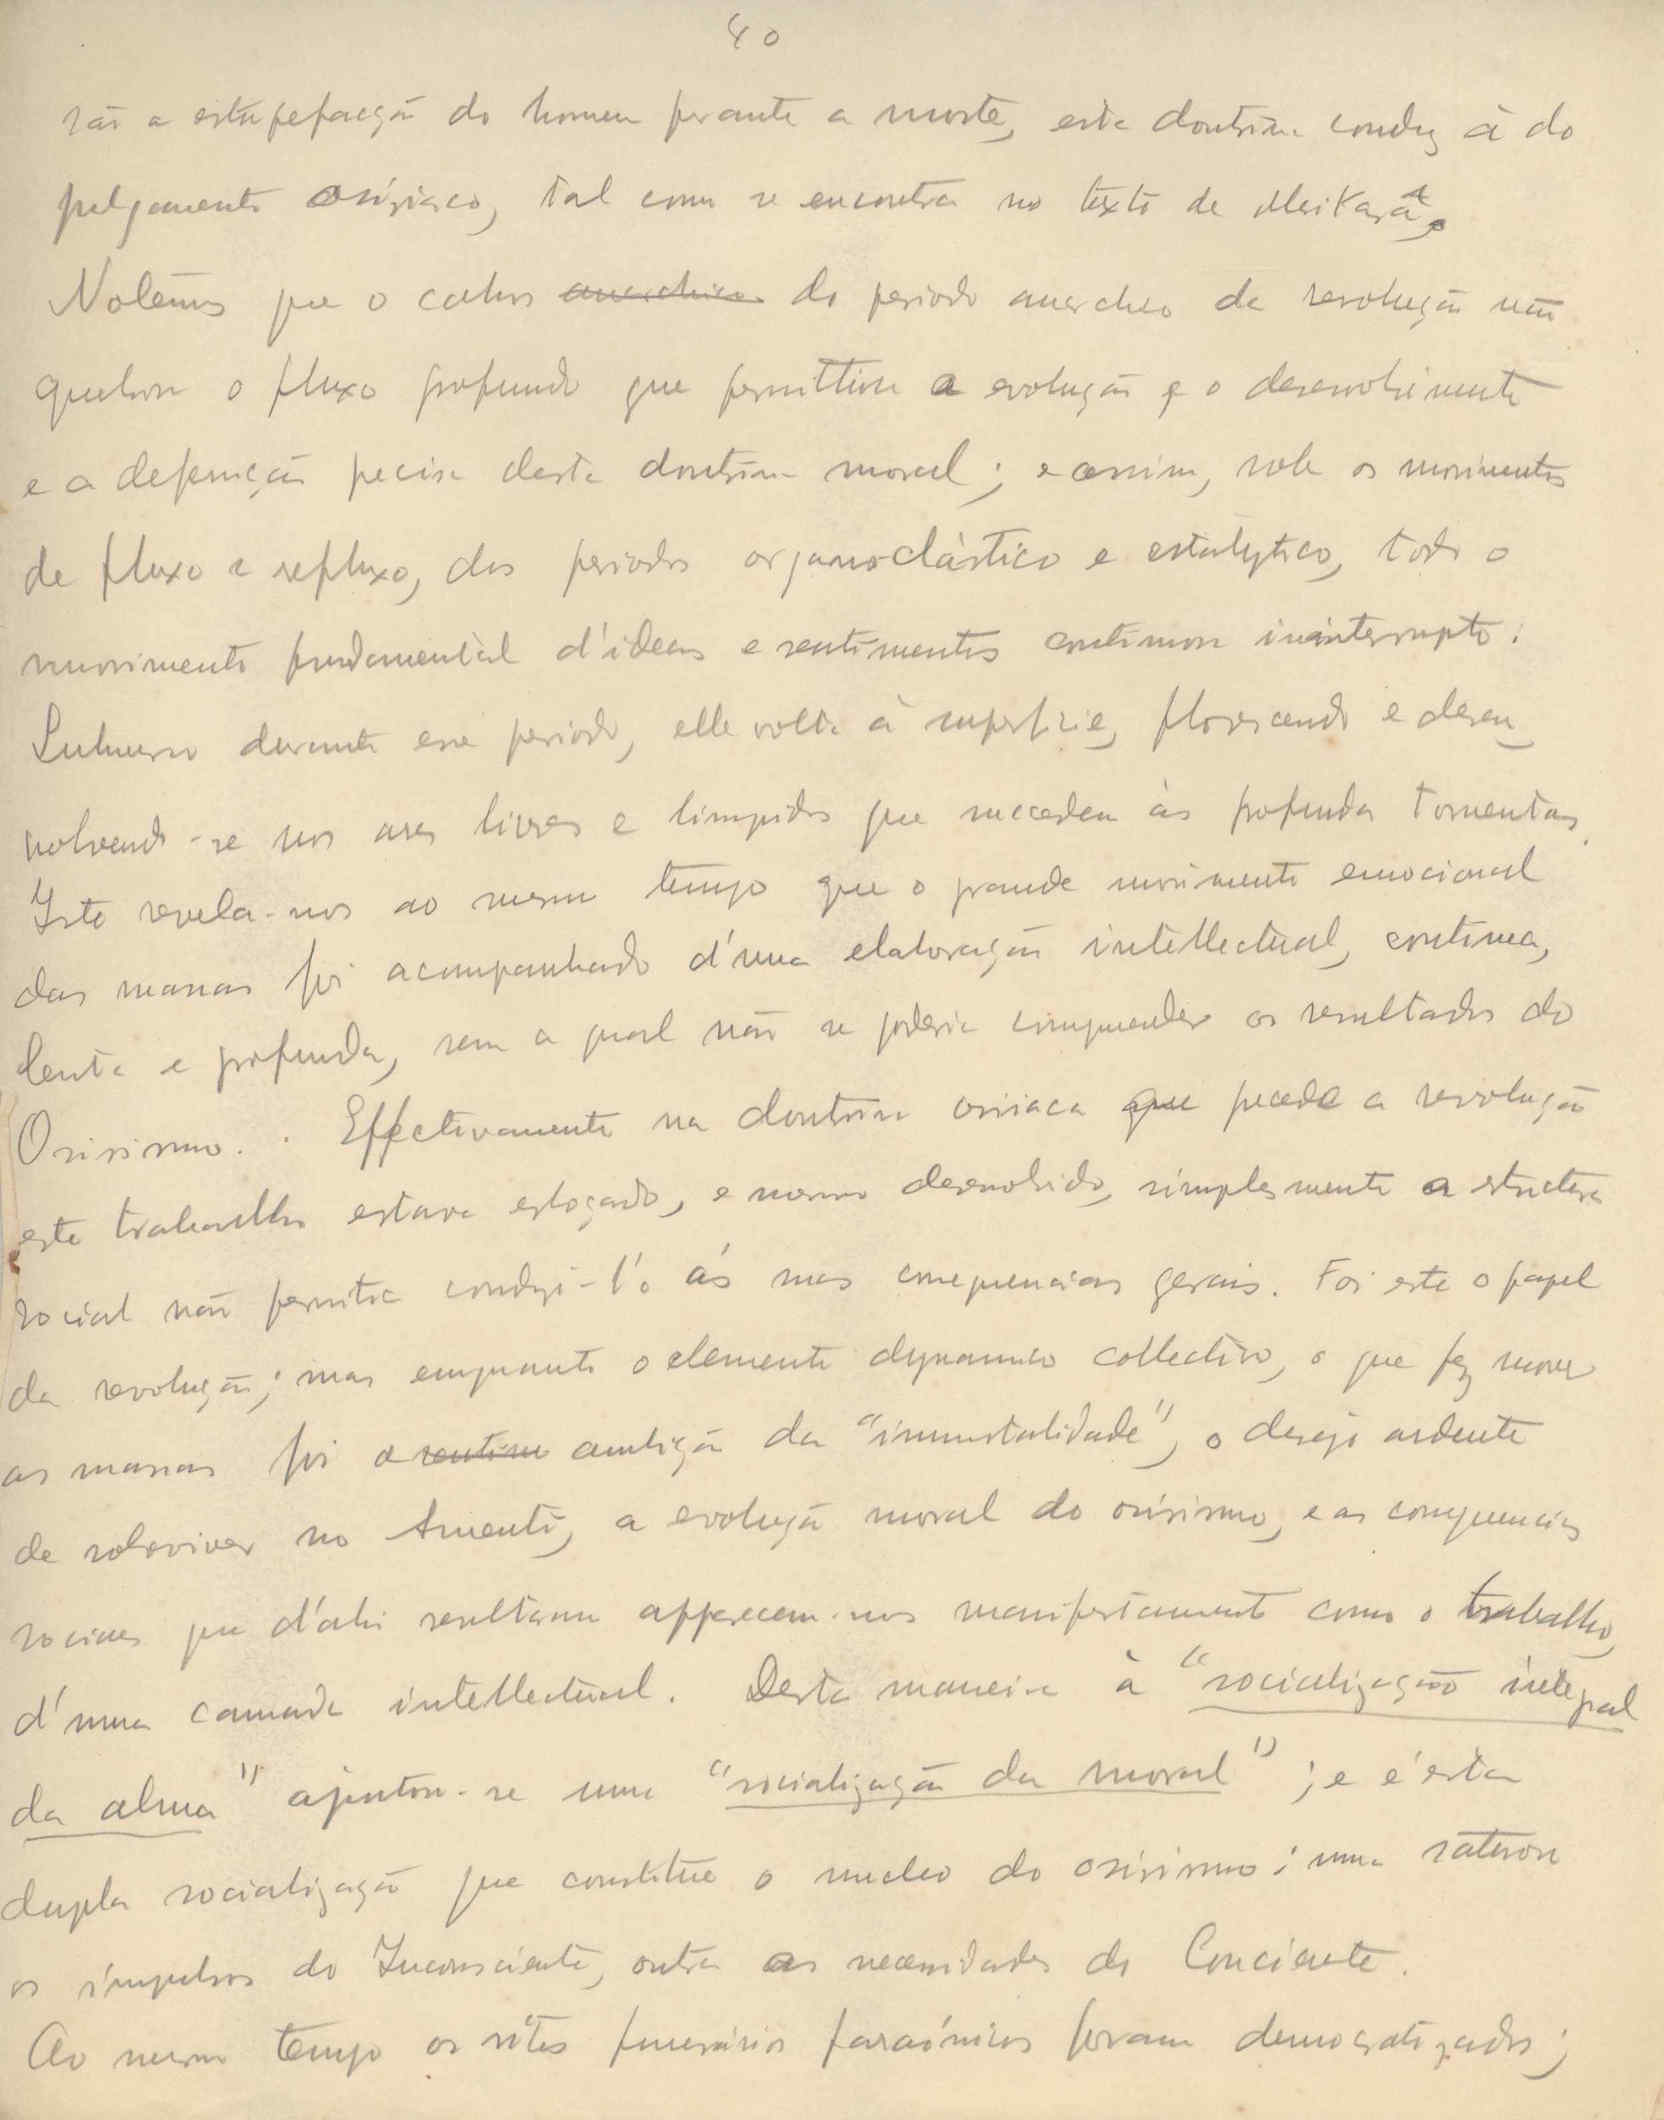 40
são a estupefacção do homem perante a morte, esta doutrina conduz á do
julgamento osiriaco, tal como se encontra no texto de Merikará.
Notêmos que o cahos anarchico do periodo anarchico da revolução não
quebrou o fluxo profundo que permittira a evolução e o desenvolvimento
e a defenição precisa desta doutrina moral; e assim, sob os movimentos
de fluxo e refluxo, dos periodos organoclástico e estalytico, todo o
movimento fundamental d'ideas e sentimentos continuou ininterrupto:
Submerso durante esse periodo, elle volta á superficie, florescendo e desen
volvendo-se nos ares livres e limpidos que succedem ás profundas tormentas.
Isto revela-nos ao mesmo tempo que o grande movimento emocional
das massas foi acompanhado d'uma elaboração intellectual, continua,
lenta e profunda, sem a qual não se poderia comprender os resultados do
Osirismo. Effectivamente na doutrina osiriaca que precede a revolução
este trabalho estava esboçado, e mesmo desenvolvido, simplesmente a estructura
social não permitia conduzi-l'o ás suas consequencias gerais. Foi este o papel
da revolução; mas emquanto o elemento dynamico collectivo, o que fez mover
as massas foi a sentim ambição da "immortalidade", o desejo ardente
de sobreviver no Amenti, a evolução moral do osirismo, e as consequencias
sociaes que d'ahi resultaram apparecem-nos manifestamente como o trabalho,
d'uma camada intellectual. Desta maneira á "socialização integral
da alma" ajuntou-se uma "socialização da moral"; e é esta
dupla socialização que constitue o nucleo do osirismo: uma saturou
os impulsos do Inconsciente, outra as necessidades do Conciente.
Ao mesmo tempo os ritos funerários faraónicos foram democratizados;